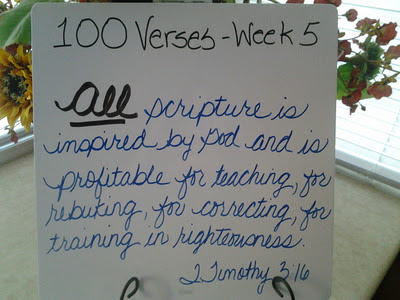 100 Verses - Week 5
All scripture is
inspired by God and is
profitable for teaching, for
rebuking, for correcting, for
training in righteousness.
2 Timothy 3:16